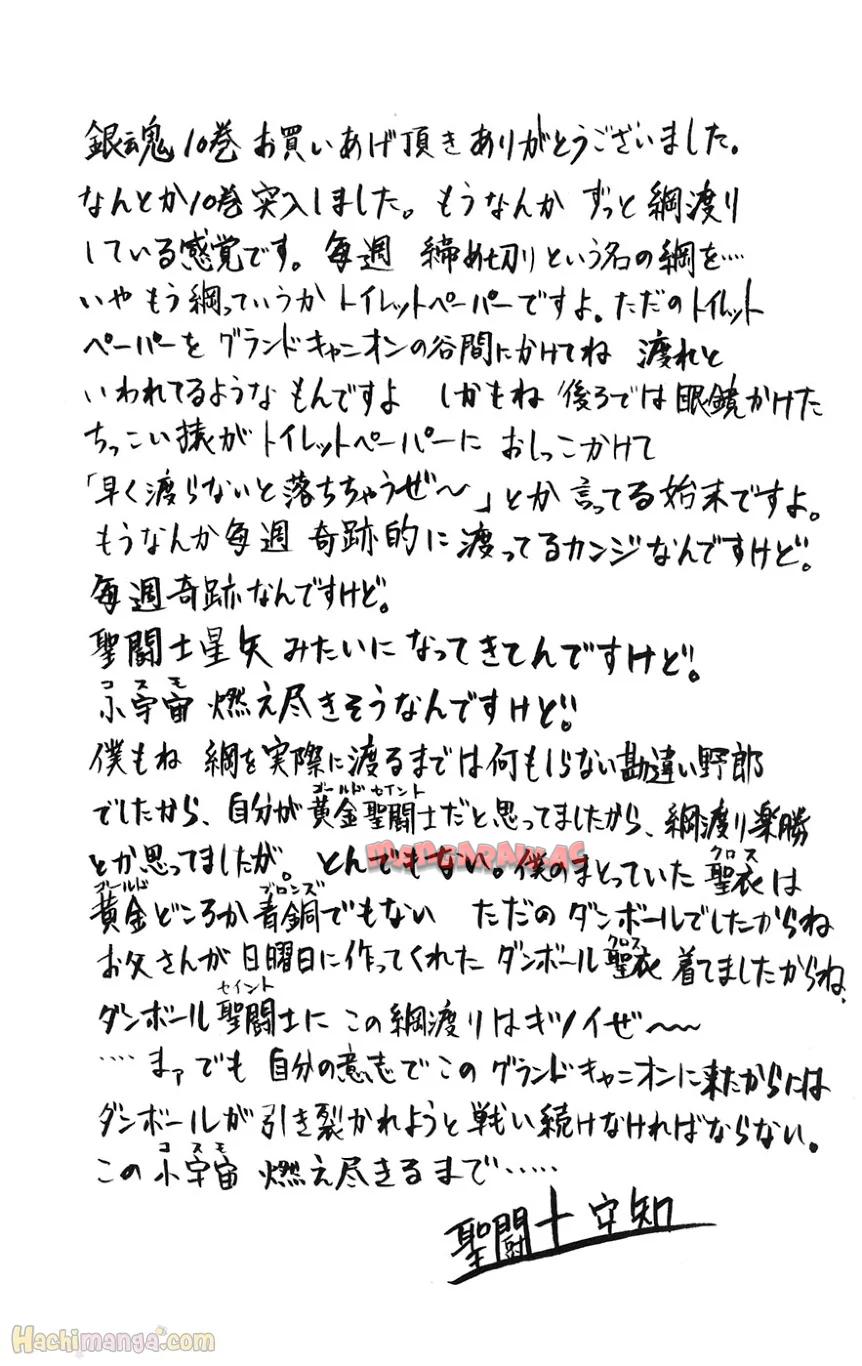 銀魂10巻 お買いあげ頂きありがとうございました。
なんとか10巻突入しました。もうなんか ずっと綱渡り
している感覚です。毎週 締め切りという名の綱を…
いや もう綱っていうか トイレットペーパーですよ。ただのトイレット
ペーパーを グランドキャニオンの谷間にかけてね 渡れと
いわれてるような もんですよ しかもね 後ろでは眼鏡かけた
ちっこい猿がトイレットペーパーに おしっこかけて
「早く渡らないと落ちちゃうぜ〜」とか言ってる始末ですよ。
もうなんか毎週 奇跡的に渡ってるカンジなんですけど。
毎週奇跡なんですけど。
聖闘士星矢みたいになってきてんですけど。
コスモ
小宇宙 燃え尽きそうなんですけど!
僕もね 綱を実際に渡るまでは何もしらない勘違い野郎
ゴールドセイント
でしたから、自分が黄金聖闘士だと思ってましたから、綱渡り楽勝
クロス
とか思ってましたが。とんでもない。僕のまとっていた聖衣は
ゴールド ブロンズ
黄金どころか青銅でもない ただのダンボールでしたからね
クロス
お父さんが日曜日に作ってくれたダンボール聖衣着てましたからね、
セイント
ダンボール聖闘士に この綱渡りはキツイぜ〜〜
……まァでも 自分の意志でこの グランドキャニオンに来たからには
ダンボールが引き裂かれようと戦い続けなければならない。
コスモ
この小宇宙 燃え尽きるまで……
聖闘士 空知
MANGARAW.AC
Hachimanga.com